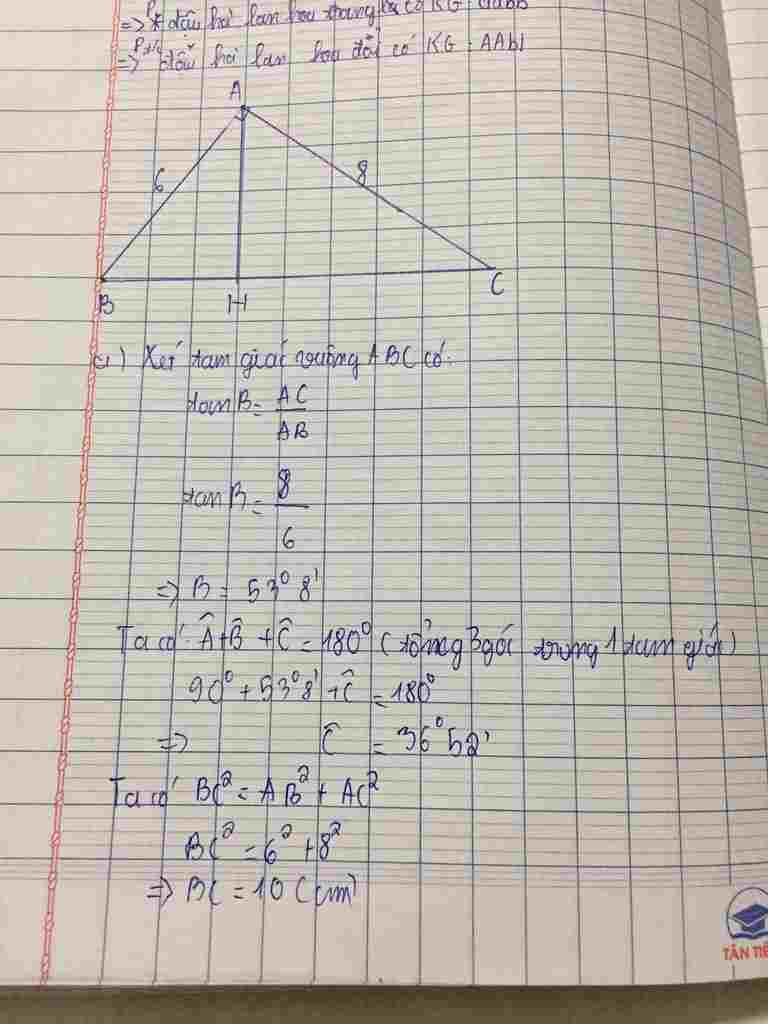 đậu hà lan hoa trong
=> đậu hà lan hoa đỏ có KG: AAbb
A
6
8
B
H
C
a) Xét tam giác vuông ABC có:
tan B = AC
AB
tan B = 8
6
=> B = 53° 8'
Ta có: Â + B̂ + Ĉ = 180° (tổng 3 góc trong 1 tam giác)
90° + 53° 8' + Ĉ = 180°
=> Ĉ = 36° 52'
Ta có BC² = AB² + AC²
BC² = 6² + 8²
=> BC = 10 (cm)
TÂN TIẾ